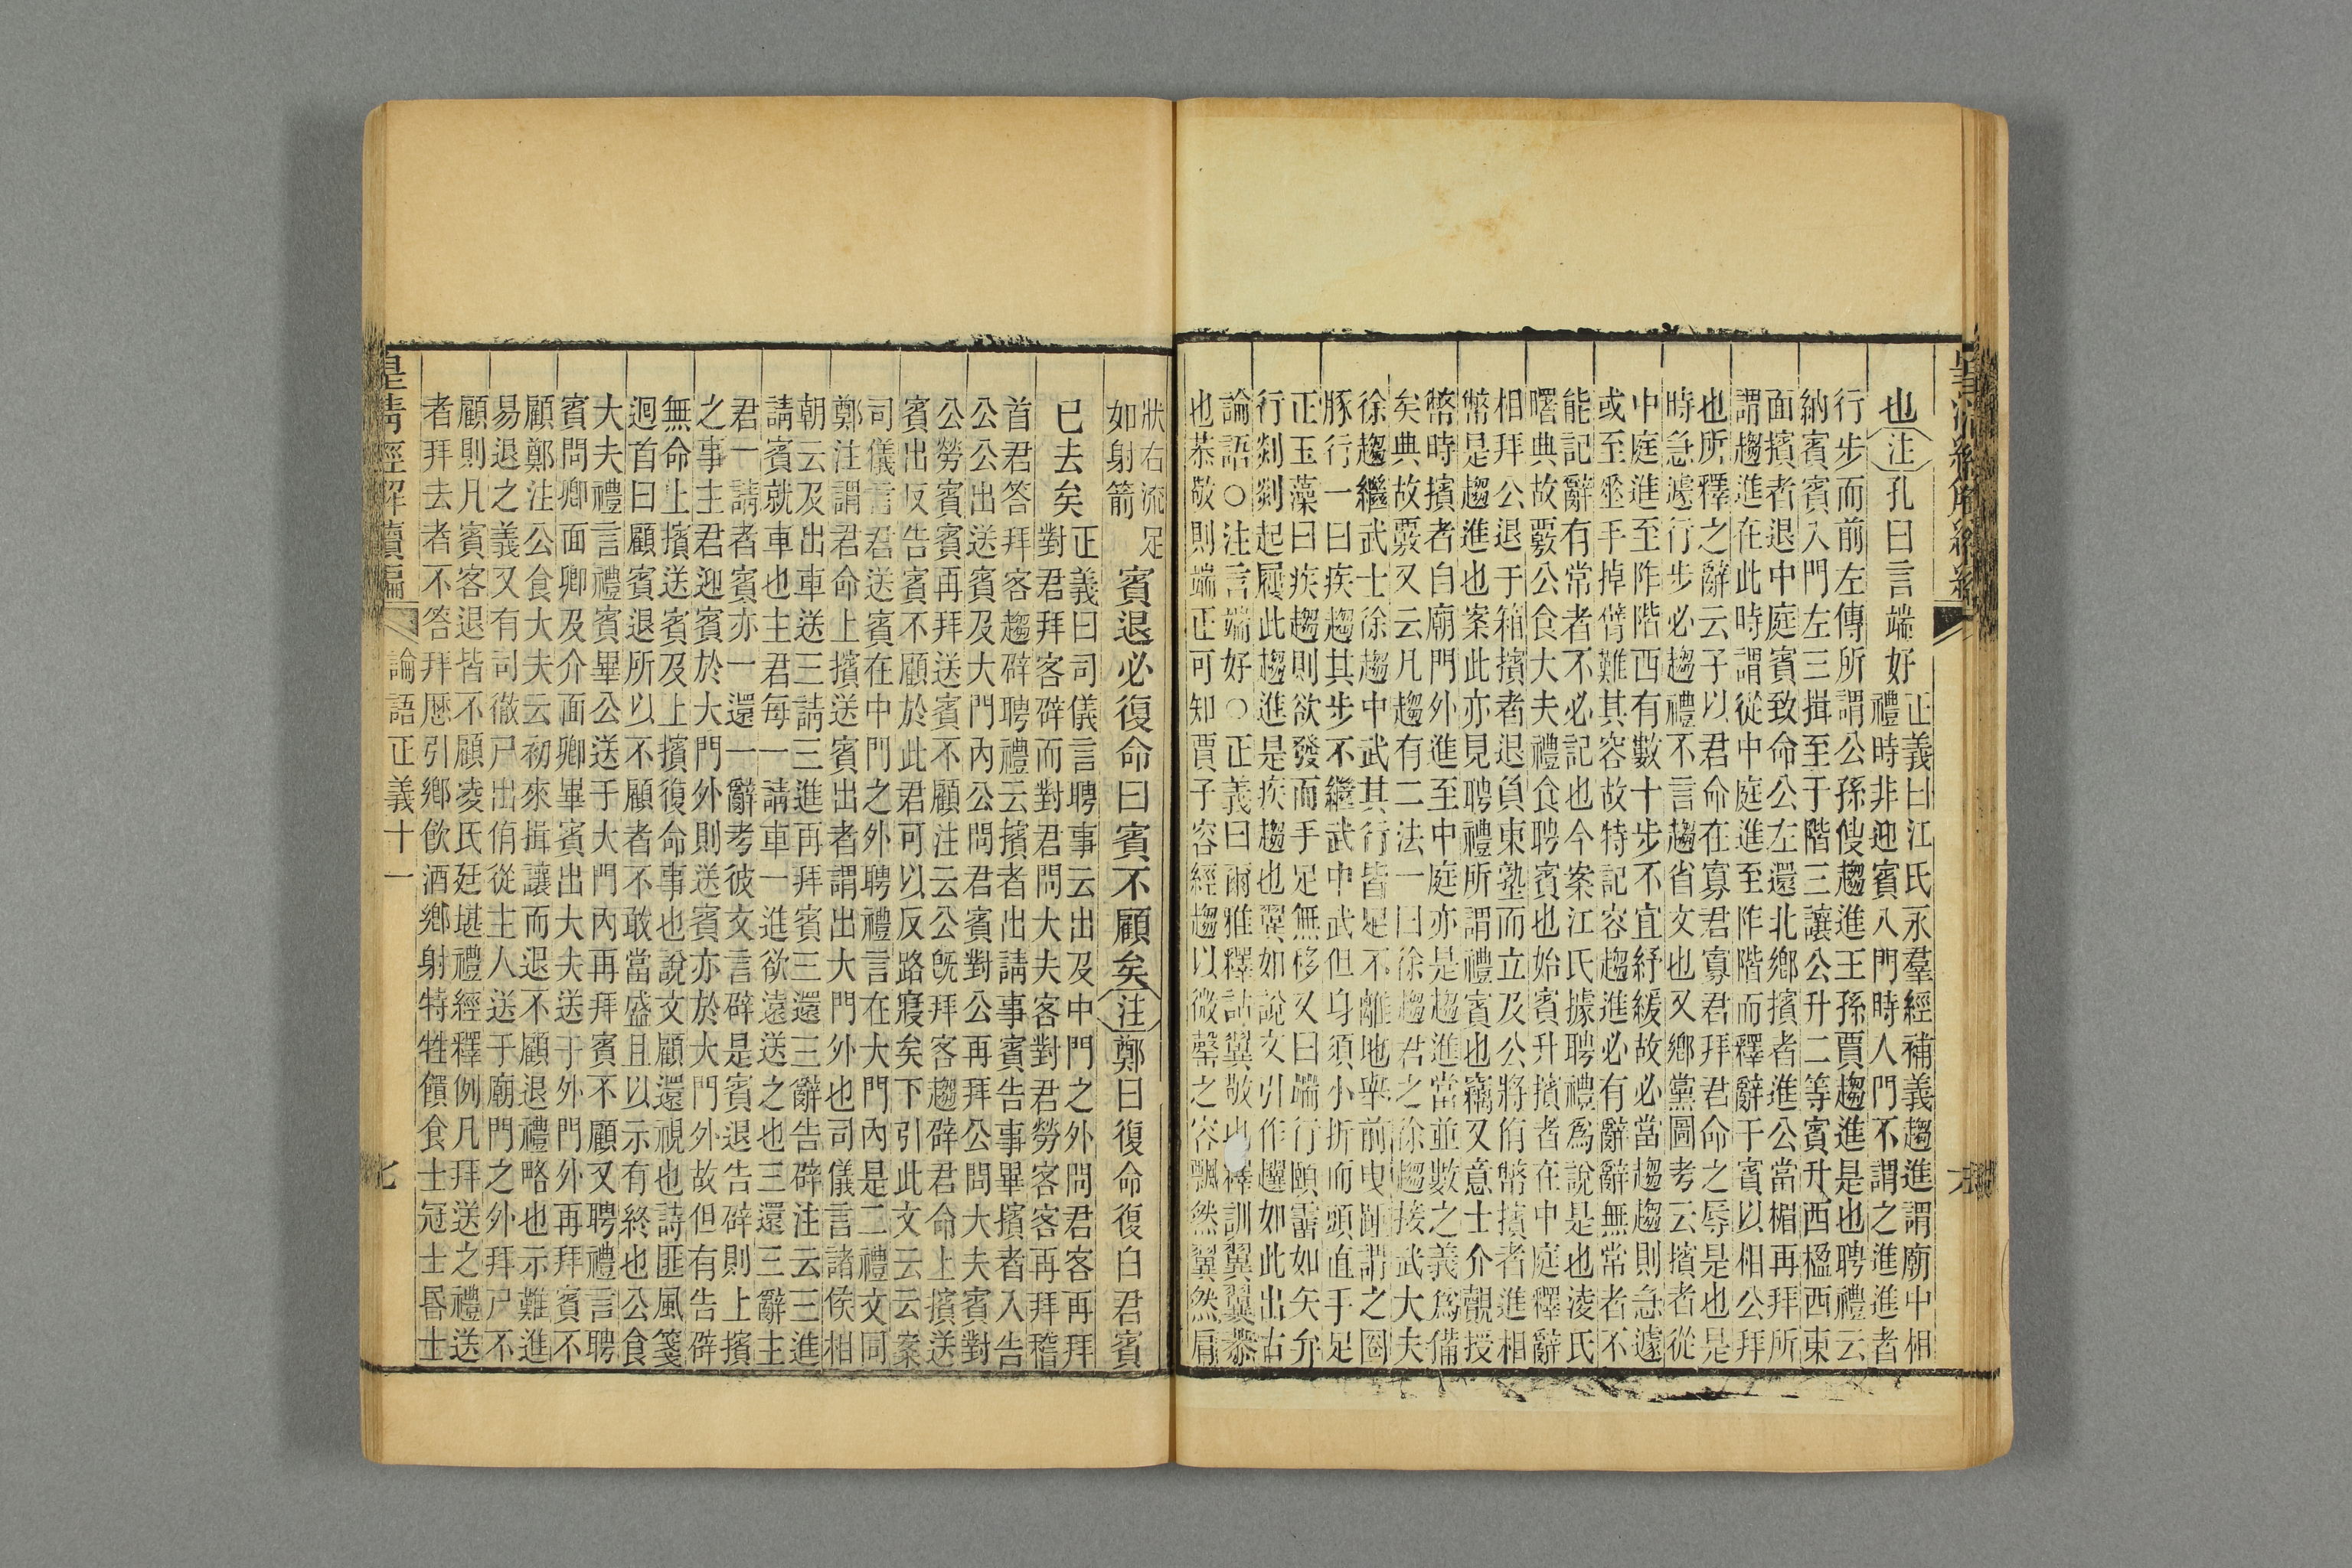 皇清經解續編
也注孔曰言端好
正義曰江氏永羣經補義趨進謂廟中相
禮時非迎賓入門時人門不謂之進進者
行步而前左傳所謂公孫傁趨進王孫賈趨進是也聘禮云
納賓賓入門左三揖至于階三讓公升二等賓升西楹西東
面擯者退中庭賓致命公左還北鄉擯者進公當楣再拜所
謂趨進在此時謂從中庭進至阼階而釋辭于賓以相公拜
也所釋之辭云子以君命在寡君寡君拜君命之辱是也是
時急遽行步必趨禮不言趨省文也又鄉黨圖考云擯者從
中庭進至阼階西有數十步不宜紓緩故必當趨趨則急遽
或至垂手掉臂難其容故特記容趨進必有辭辭無常者不
能記辭有常者不必記也今案江氏據聘禮爲說是也淩氏
曙典故覈公食大夫禮食聘賓也始賓升擯者在中庭釋辭
相拜公退于箱擯者退負東塾而立及公將侑幣擯者進相
幣是趨進也案此亦見聘禮所謂禮賓也竊又意士介覿授
幣時擯者自廟門外進至中庭亦是趨進當並數之義爲備
矣典故覈又云凡趨有二法一曰徐趨君之徐趨接武大夫
徐趨繼武士徐趨中武其行皆足不離地舉前曳踵謂之圈
豚行一曰疾趨其步不繼武中武但身須小折而頭直手足
正玉藻曰疾趨則欲發而手足無移又曰端行頤霤如矢弁
行剡剡起屨此趨進是疾趨也翼如說文引作趩如此出古
論語○注言端好○正義曰爾雅釋詁翼敬也釋訓翼翼恭
也恭敬則端正可知賈子容經趨以微磬之容飄然翼然肩
狀右流足
如射箭
賓退必復命曰賓不顧矣注鄭曰復命復白君賓
已去矣
正義曰司儀言聘事云出及中門之外問君客再拜
對君拜客辟而對君問大夫客對君勞客客再拜稽
首君答拜客趨辟聘禮云擯者出請事賓告事畢擯者入告
公公出送賓及大門內公問君賓對公再拜公問大夫賓對
公勞賓賓再拜送賓不顧注云公旣拜客趨辟君命上擯送
賓出反告賓不顧於此君可以反路寢矣下引此文云云案
司儀言君送賓在中門之外聘禮言在大門內是二禮文同
鄭注謂君命上擯送賓出者謂出大門外也司儀言諸侯相
朝云及出車送三請三進再拜賓三還三辭告辟注云三進
請賓就車也主君每一請車一進欲遠送之也三還三辭主
君一請者賓亦一還一辭考彼文言辟是賓退告辟則上擯
之事主君迎賓於大門外則送賓亦於大門外故但有告辟
無命上擯送賓及上擯復命事也說文顧還視也詩匪風箋
迴首曰顧賓退所以不顧者不敢當盛且以示有終也公食
大夫禮言禮賓畢公送于大門內再拜賓不顧又聘禮言聘
賓問卿面卿及介面卿畢賓出大夫送于外門外再拜賓不
顧鄭注公食大夫云初來揖讓而退不顧退禮略也示難進
易退之義又有司徹尸出侑從主人送于廟門之外拜尸不
顧則凡賓客退皆不顧凌氏廷堪禮經釋例凡拜送之禮送
者拜去者不答拜歷引鄉飲酒鄉射特牲饋食士冠士昬士
皇清經解續編
論語正義十一
七